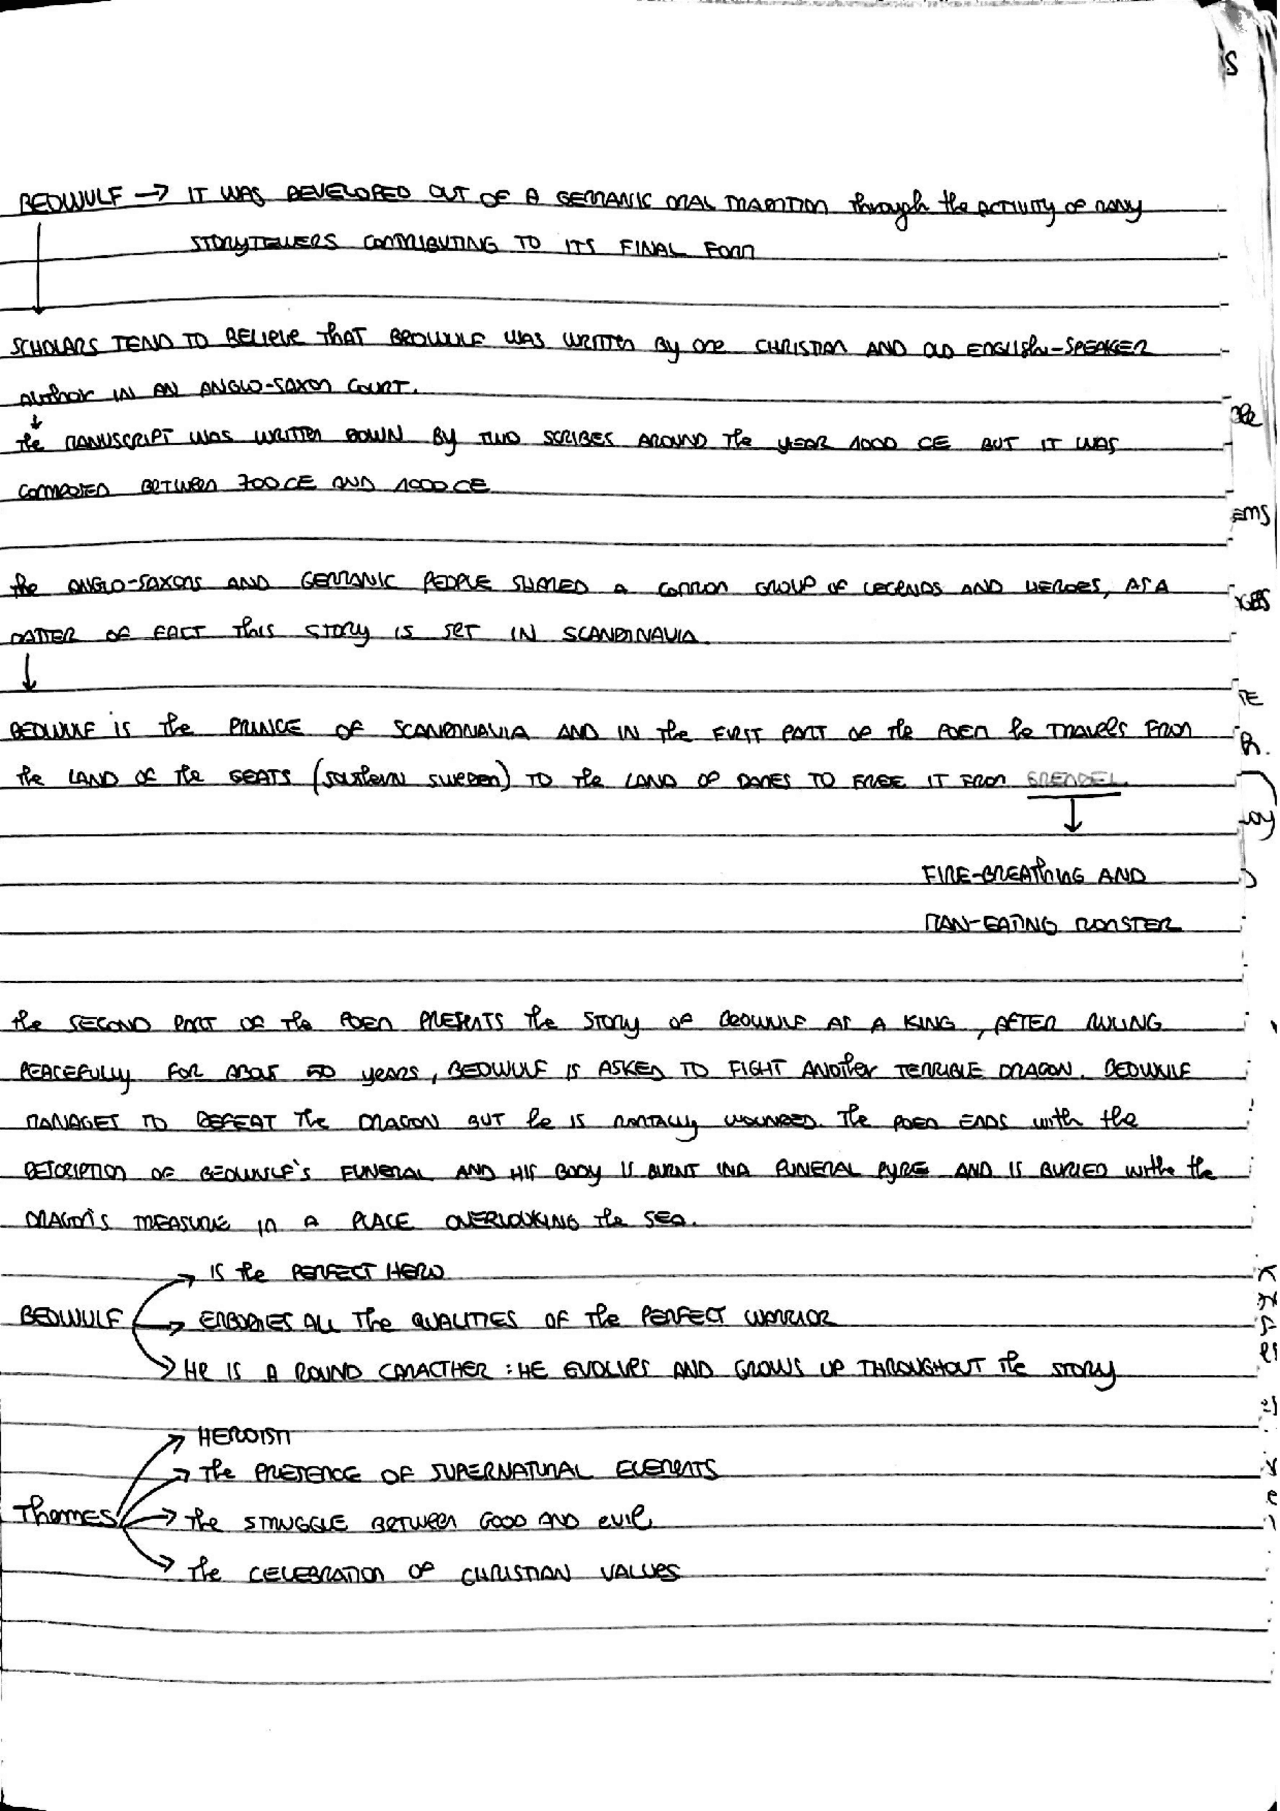 S
BEOWULF → IT WAS DEVELOPED OUT OF A GERMANIC ORAL TRADITION through the ACTIVITY OF MANY
STORYTELLERS CONTRIBUTING TO ITS FINAL FORM
SCHOLARS TEND TO BELIEVE THAT BEOWULF WAS WRITTEN By ONE CHRISTIAN AND OLD ENGLISH-SPEAKER
AUTHOR IN AN ANGLO-SAXON COURT.
the MANUSCRIPT WAS WRITTEN DOWN By TWO SCRIBES AROUND The yEAR 1000 CE BUT IT WAS
COMPOSED BETWEEN 700 CE AND 1000 CE
the ANGLO-SAXONS AND GERMANIC PEOPLE SHARED A COMMON GROUP OF LEGENDS AND HEROES, AS A
MATTER OF FACT This STORy IS SET IN SCANDINAVIA.
BEOWULF IS the PRINCE OF SCANDINAVIA AND IN the FIRST PART OF the POEM he TRAVELS FROM
the LAND OF the GEATS (SOUTHERN SWEDEN) TO the LAND OF DANES TO FREE IT FROM GRENDEL
FIRE-BREATHING AND
MAN-EATING MONSTER
the SECOND PART OF the POEM PRESENTS the STORy OF BEOWULF AS A KING, AFTER RULING
PEACEFULLy FOR ABOUT 50 yEARS, BEOWULF IS ASKED TO FIGHT ANOTHER TERRIBLE DRAGON. BEOWULF
MANAGES TO DEFEAT the DRAGON BUT he IS MORTALLy WOUNDED. The POEM ENDS with the
DESCRIPTION OF BEOWULF'S FUNERAL AND HIS BODy IS BURNT IN A FUNERAL PyRE AND IS BURIED withe the
DRAGON'S TREASURE IN A PLACE OVERLOOKING the SEA.
→ IS the PERFECT HERO
BEOWULF → EMBODIES ALL The QUALITIES OF the PERFECT WARRIOR
→ HE IS A ROUND CARACTHER : HE EVOLVES AND GROWS UP THROUGHOUT the STORy
→ HEROISM
→ the PRESENCE OF SUPERNATURAL ELEMENTS
ThEMES → the STRUGGLE BETWEEN GOOD AND EVIL
→ the CELEBRATION OF CHRISTIAN VALUES